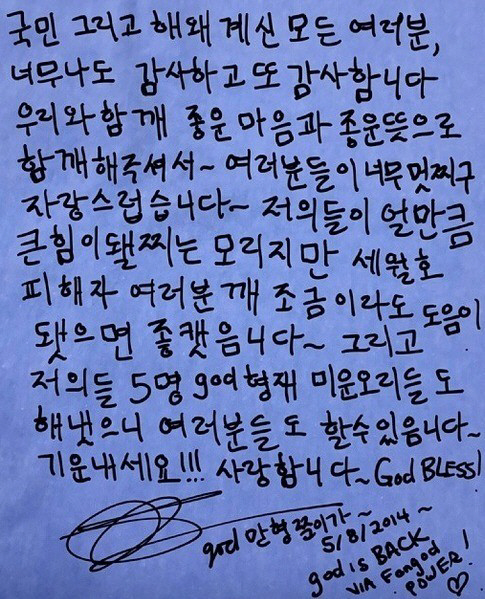 국민 그리고 해왜 계신 모든 여러분,
너무나도 감사하고 또 감사합니다
우리와 함깨 좋운 마음과 좋운뜻으로
함깨해주셔서~ 여러분들이 너무 멋찌구
자랑스럽습니다~ 저의들이 얼만큼
큰힘이됄찌는 모리지만 세월호
피해자 여러분깨 조금이라도 도음이
됏으면 좋캣음니다~ 그리고
저의들 5명 god형재 미운오리들도
해냇으니 여러분들도 할수있음니다~
기운내세요!!! 사랑합니다~ God BLESS!
god 맏형쭌이가~
5/8/2014~
god is BACK
VIA Fangod
POWER!